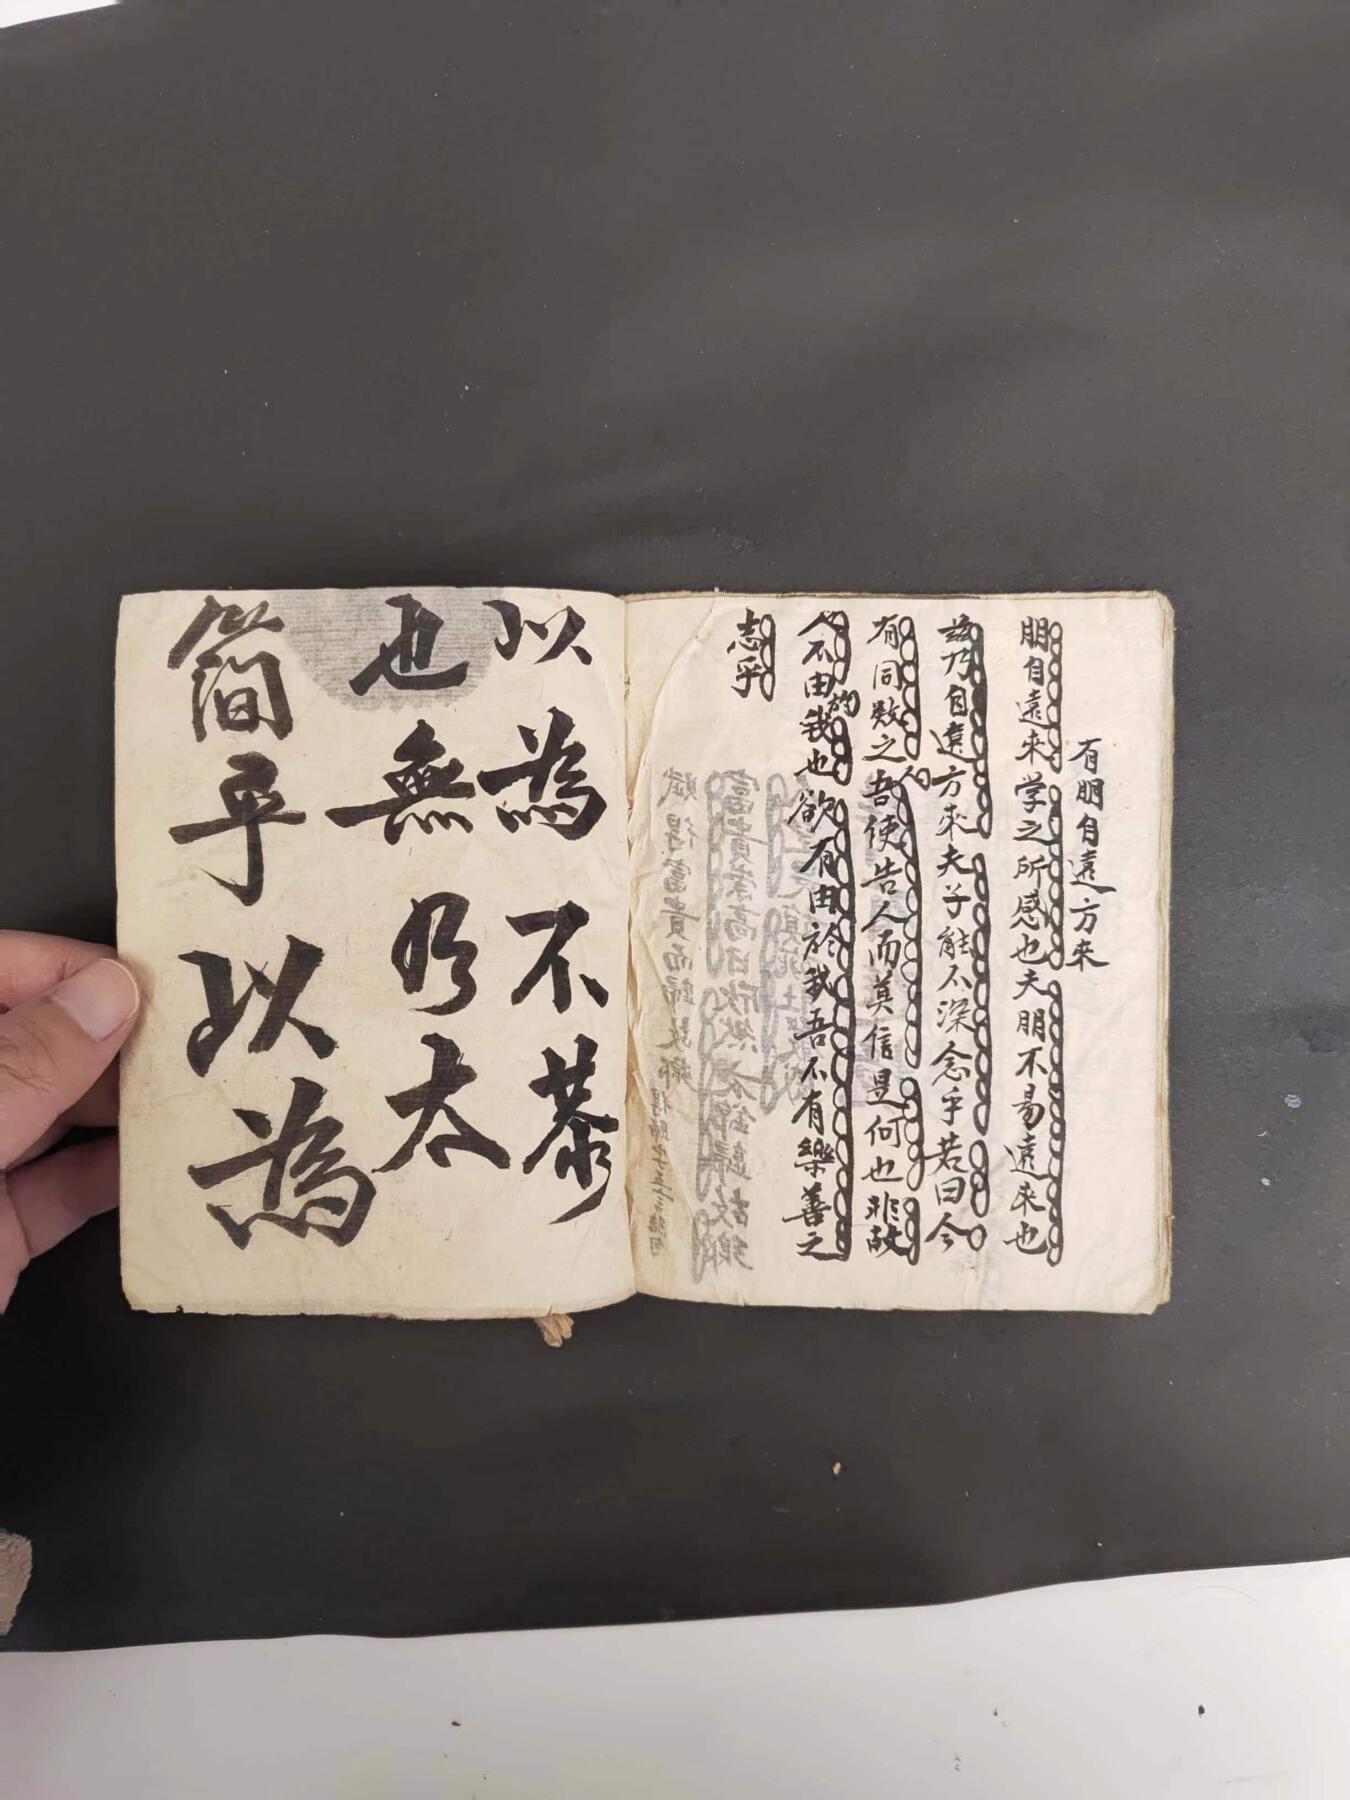 有朋自遠方來
朋自遠来学之所感也夫朋不易遠来也
兹乃自遠方來夫子能不深念乎若曰今
有同歎之吾使告人而莫信是何也非故
人不由我也欲有由於我吾不有樂善之
志乎
的
以為不恭
也無乃太
簡乎以為